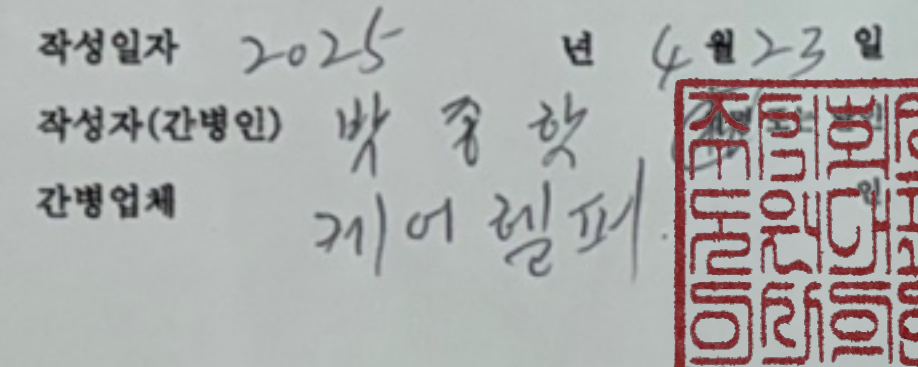 작성일자 2025 년 4 월 23 일
작성자(간병인) 박종학
간병업체 케어헬퍼
인